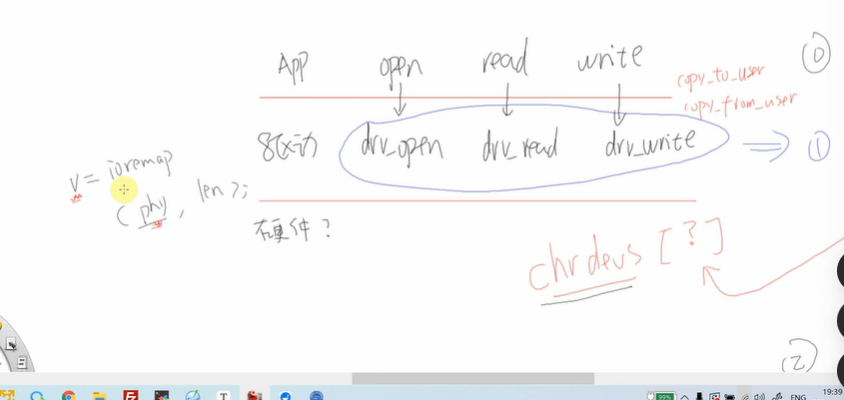 App open read write ⓪
copy_to_user
copy_from_user
驱动 drv_open drv_read drv_write ⇒ ①
v = ioremap
( phy, len );
硬件 ?
chrdevs [ ? ]
②
99% ENG 19:39